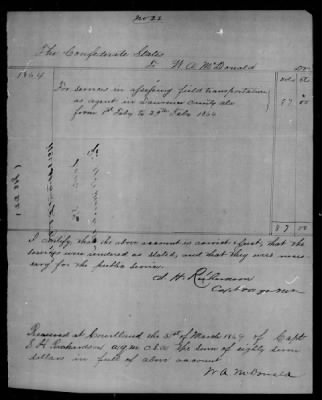 No 21
The Confederate States
To W. A. McDonald
Dr
1864
For services in assessing field transportation
as agent in Lawrence County Ala
from 1st Feby to 29th Feby 1864
87 00
87 00
I certify, that the above account is correct & just, that the
services were rendered as stated, and that they were neces
sary for the public service.
H. Richardson
Capt
Received at Courtland the 31st of March 1864 of Capt
Richardson a.q.m. C.S.A. the sum of eighty seven
dollars in full of above account
W A McDonald